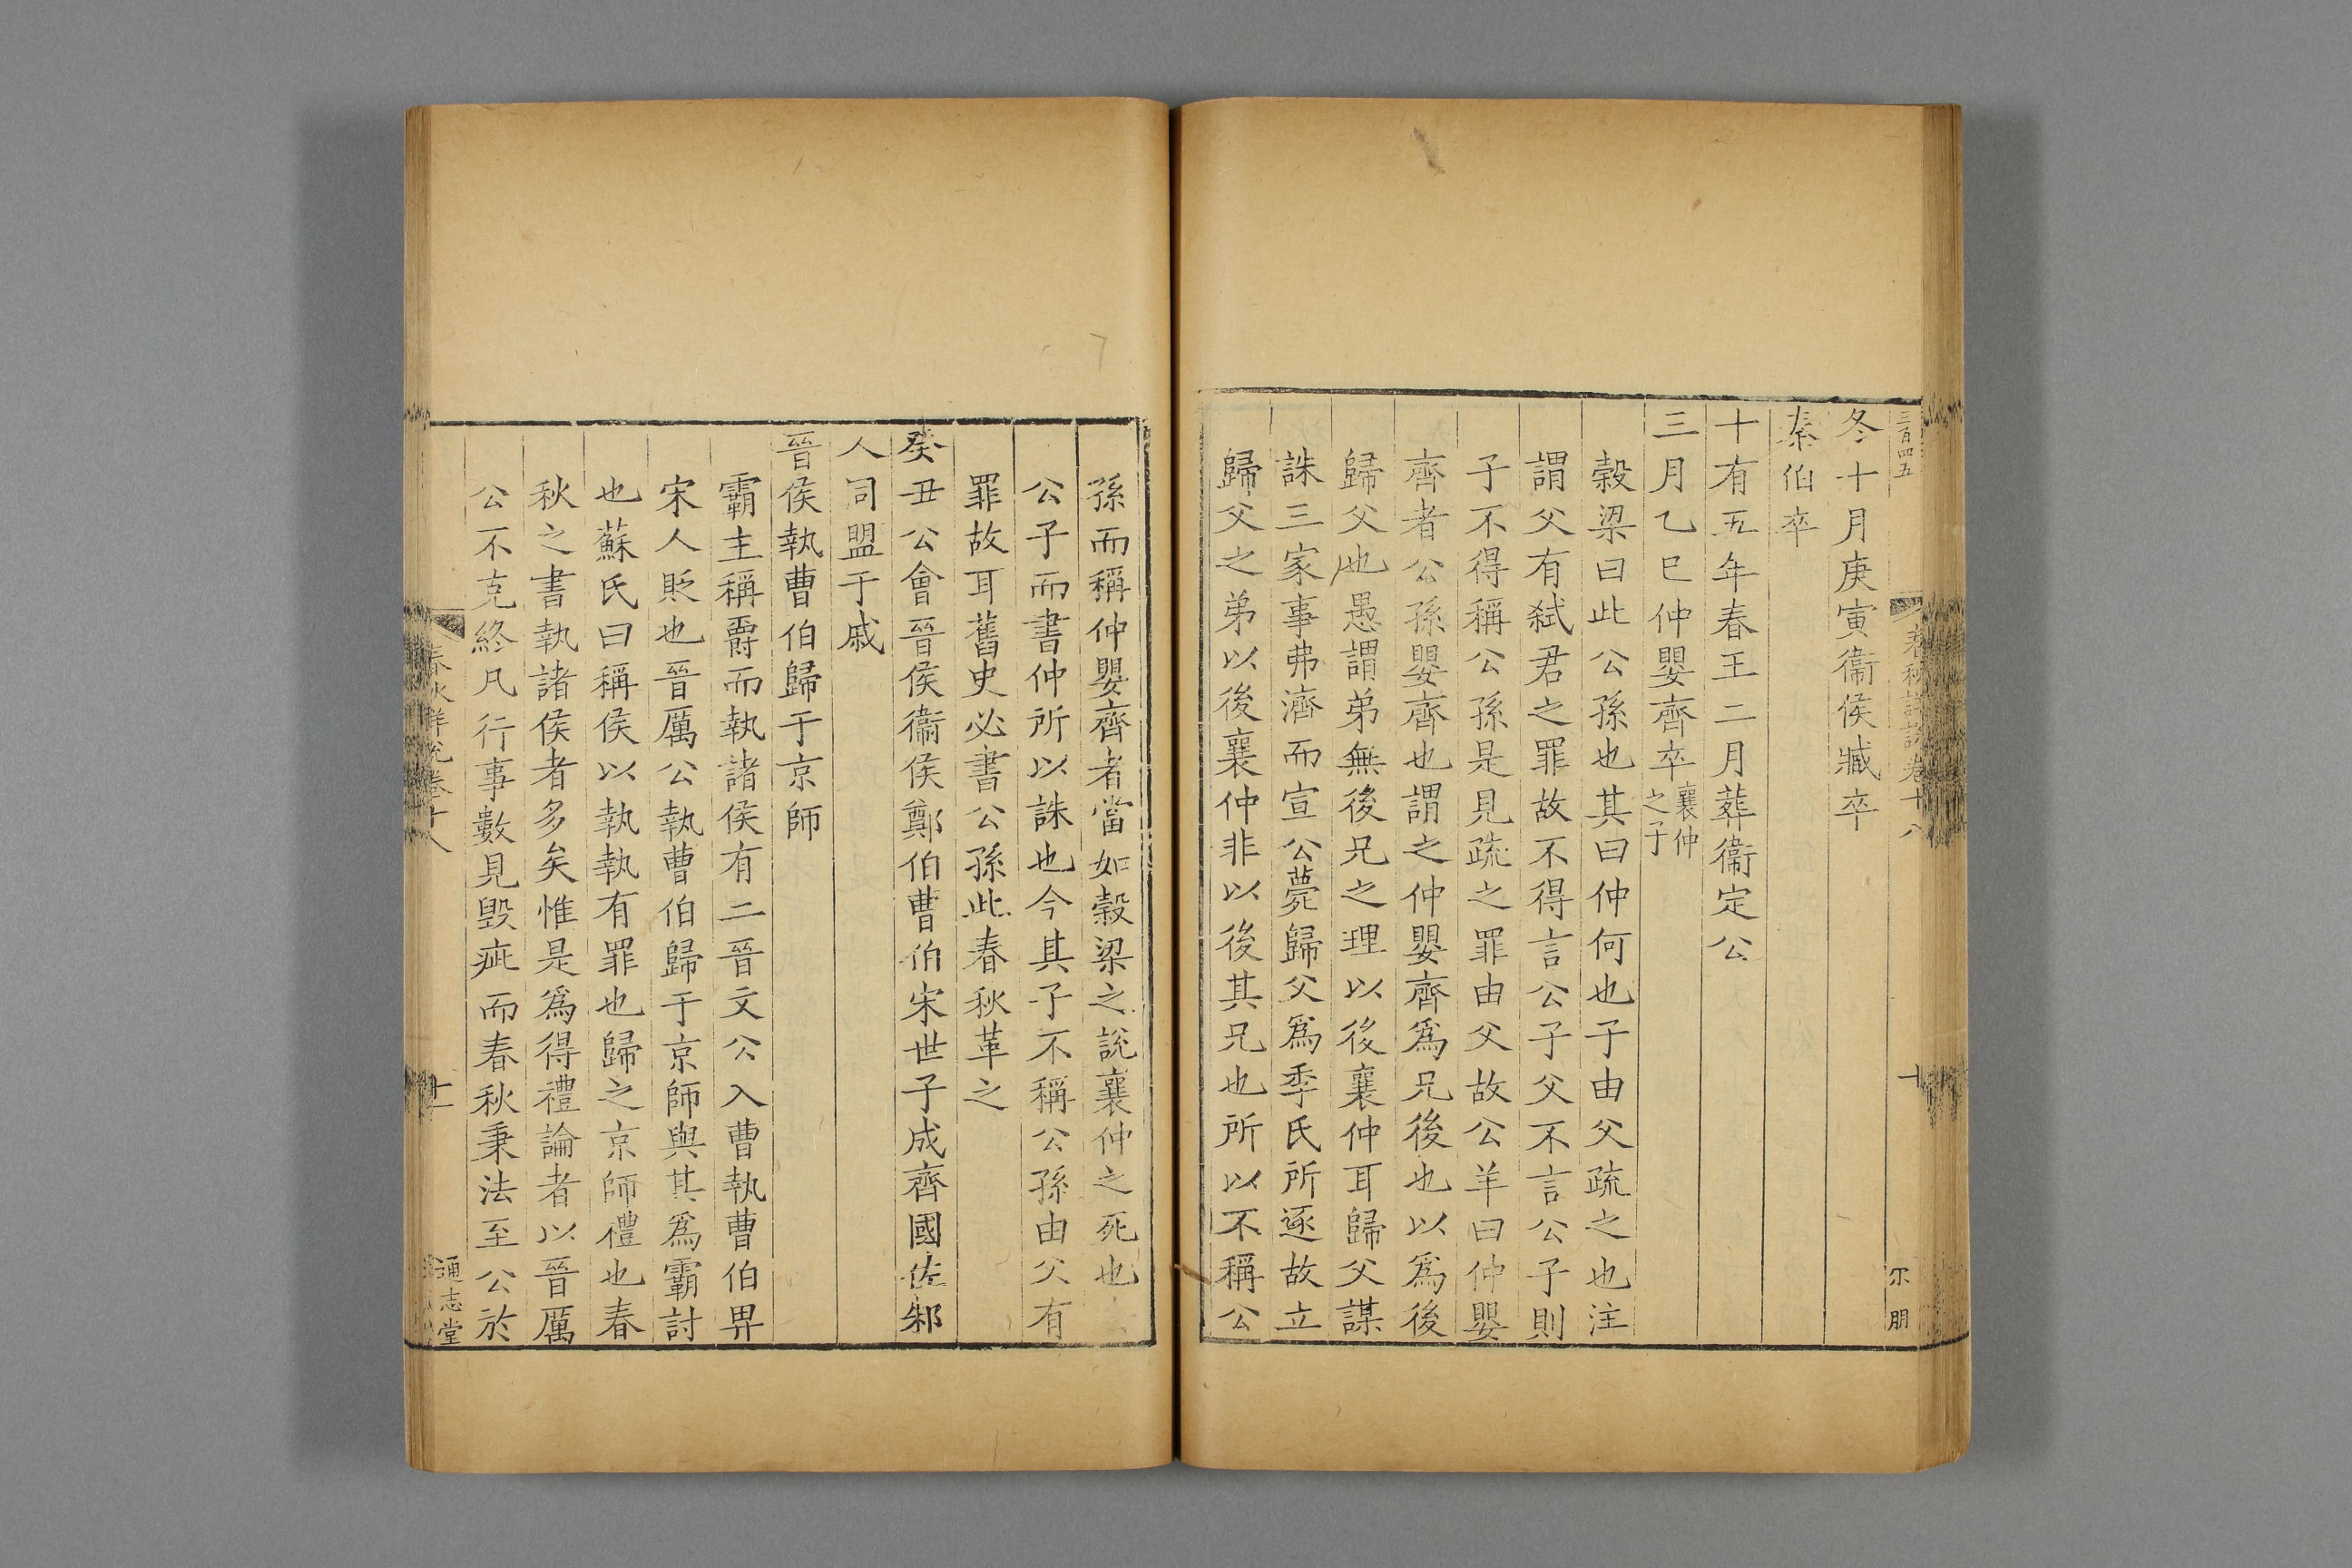 三百四五
春秋詳說卷十八
十
尔朋
冬十月庚寅衞侯臧卒
秦伯卒
十有五年春王二月葬衞定公
三月乙巳仲嬰齊卒襄仲之子
穀梁曰此公孫也其曰仲何也子由父疏之也注
謂父有弑君之罪故不得言公子父不言公子則
子不得稱公孫是見疏之罪由父故公羊曰仲嬰
齊者公孫嬰齊也謂之仲嬰齊爲兄後也以爲後
歸父也愚謂弟無後兄之理以後襄仲耳歸父謀
誅三家事弗濟而宣公薨歸父爲季氏所逐故立
歸父之弟以後襄仲非以後其兄也所以不稱公
孫而稱仲嬰齊者當如穀梁之說襄仲之死也
公子而書仲所以誅也今其子不稱公孫由父有
罪故耳舊史必書公孫此春秋革之
癸丑公會晉侯衞侯鄭伯曹伯宋世子成齊國佐邾
人同盟于戚
晉侯執曹伯歸于京師
霸主稱爵而執諸侯有二晉文公入曹執曹伯畀
宋人貶也晉厲公執曹伯歸于京師與其爲霸討
也蘇氏曰稱侯以執執有罪也歸之京師禮也春
秋之書執諸侯者多矣惟是爲得禮論者以晉厲
公不克終凡行事數見毀疵而春秋秉法至公於
春秋詳說卷十八
十一
通志堂